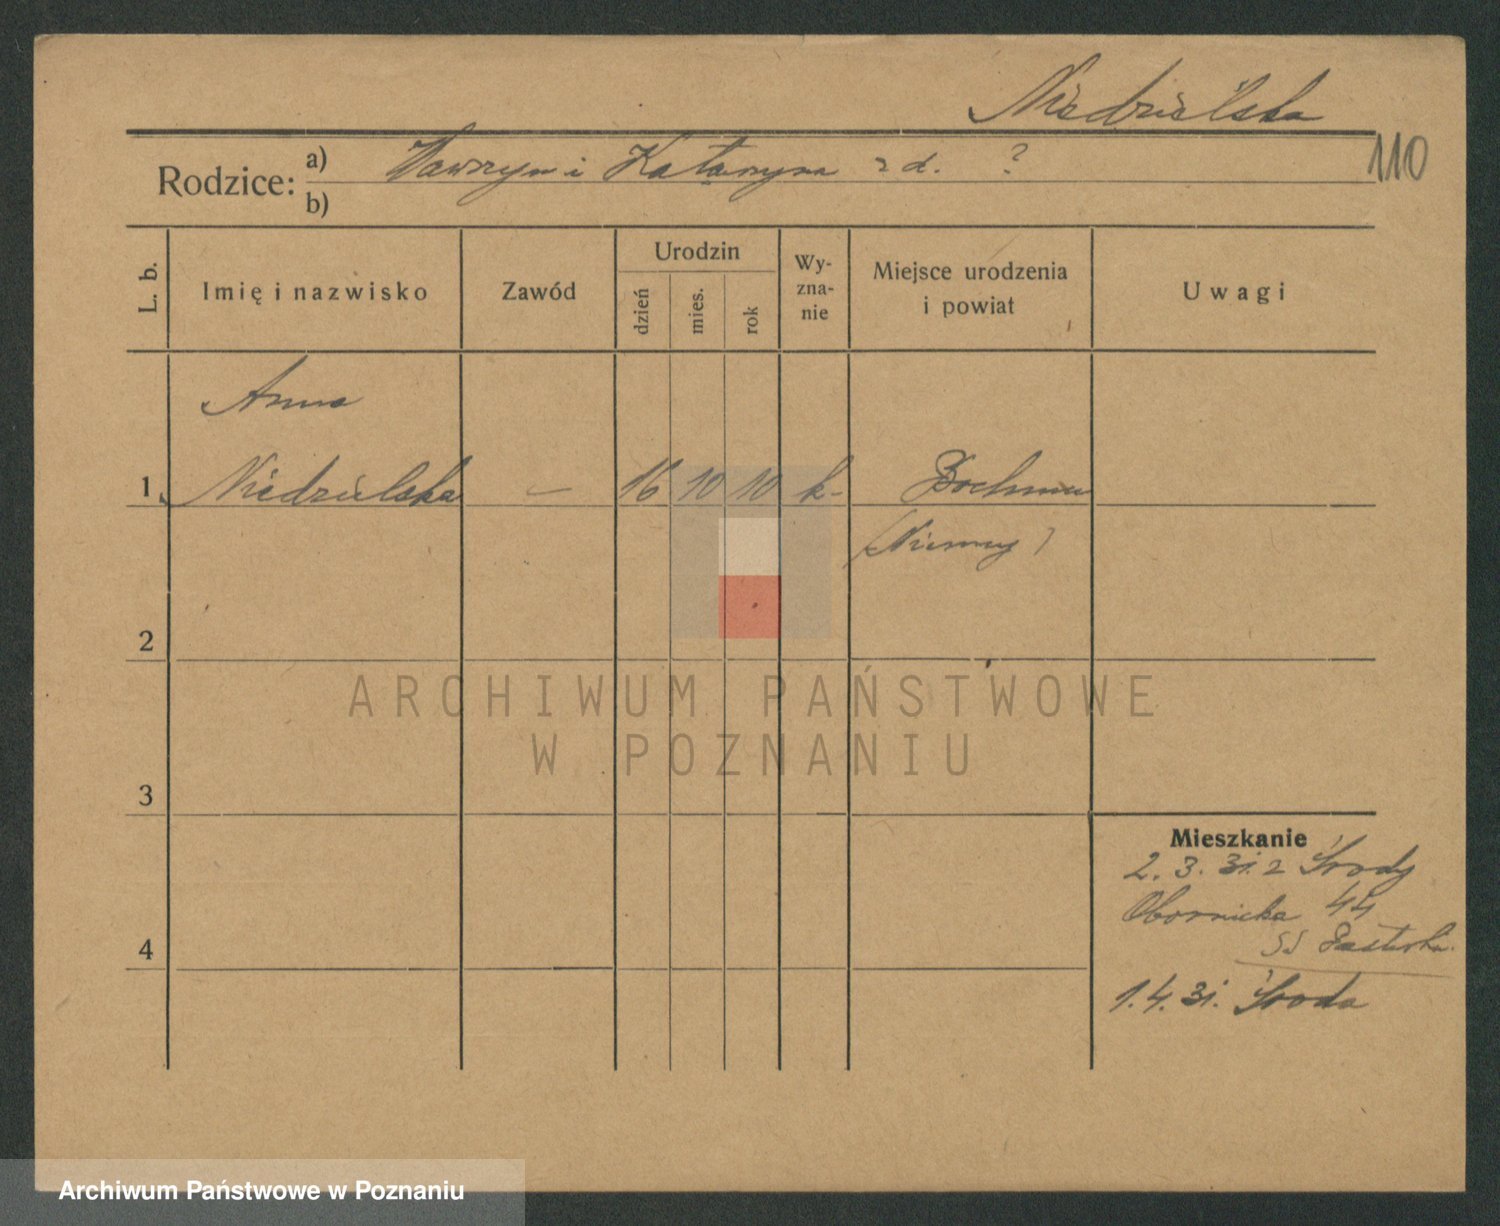 Niedzielska
110
Rodzice: a) Wawrzyn i Katarzyna z d. ?
b)
L. b.
Imię i nazwisko
Zawód
Urodzin
dzień
mies.
rok
Wy-
zna-
nie
Miejsce urodzenia
i powiat
Uwagi
Anna
1. Niedzielska — 16 10 10 k- Bochum
(Niemcy)
2
ARCHIWUM PAŃSTWOWE
W POZNANIU
3
Mieszkanie
2. 3. 31. z Środy
Obornicka 44
4
1. 4. 31. Środa
Archiwum Państwowe w Poznaniu